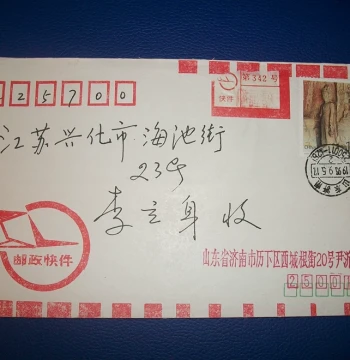 225700
第342号
快件
江苏兴化市海池街
23号
李立身 收
邮政快件
山东省济南市历下区西城根街20号尹
2500